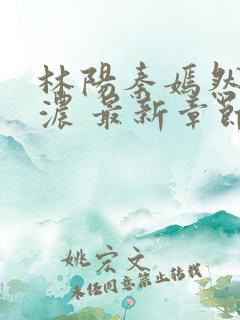 林阳秦嫣然
浓 最新章節
姚宏文
未经同意禁止转载